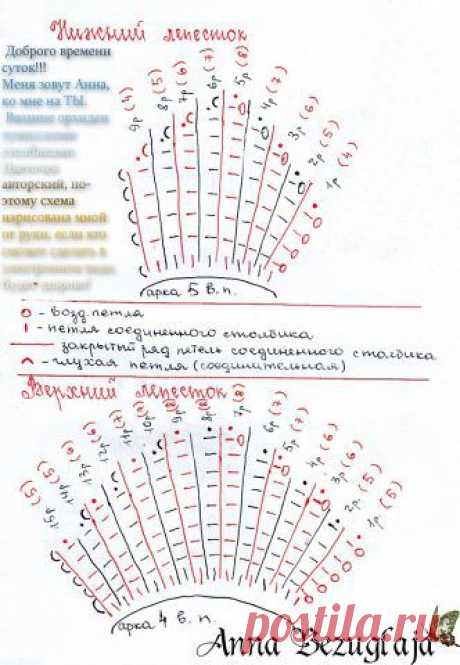 Нижний лепесток
Доброго времени
суток!!!
Меня зовут Анна,
ко мне на ТЫ.
Вязание орхидеи
авторский, по-
этому схема
нарисована мной
от руки, если кто
сможет сделать в
электронном виде,
9р (4)
8р (5)
7р (6)
6р (7)
5р (8)
4р (7)
3р (6)
2р (5)
1р (4)
арка 5 в.п.
о - возд петля
ı - петля соединенного столбика
— закрытый ряд петель соединенного столбика
^ - глухая петля (соединительная)
Верхний лепесток
15р (5)
14р (5)
13р (6)
12р (6)
11р (7)
10р
9р (8)
8р (8)
7р (8)
6р (7)
5р (7)
4р (6)
3р (6)
2р. (5)
1р (5)
арка 4 в. п.
Anna Bezuglaja
postila.ru